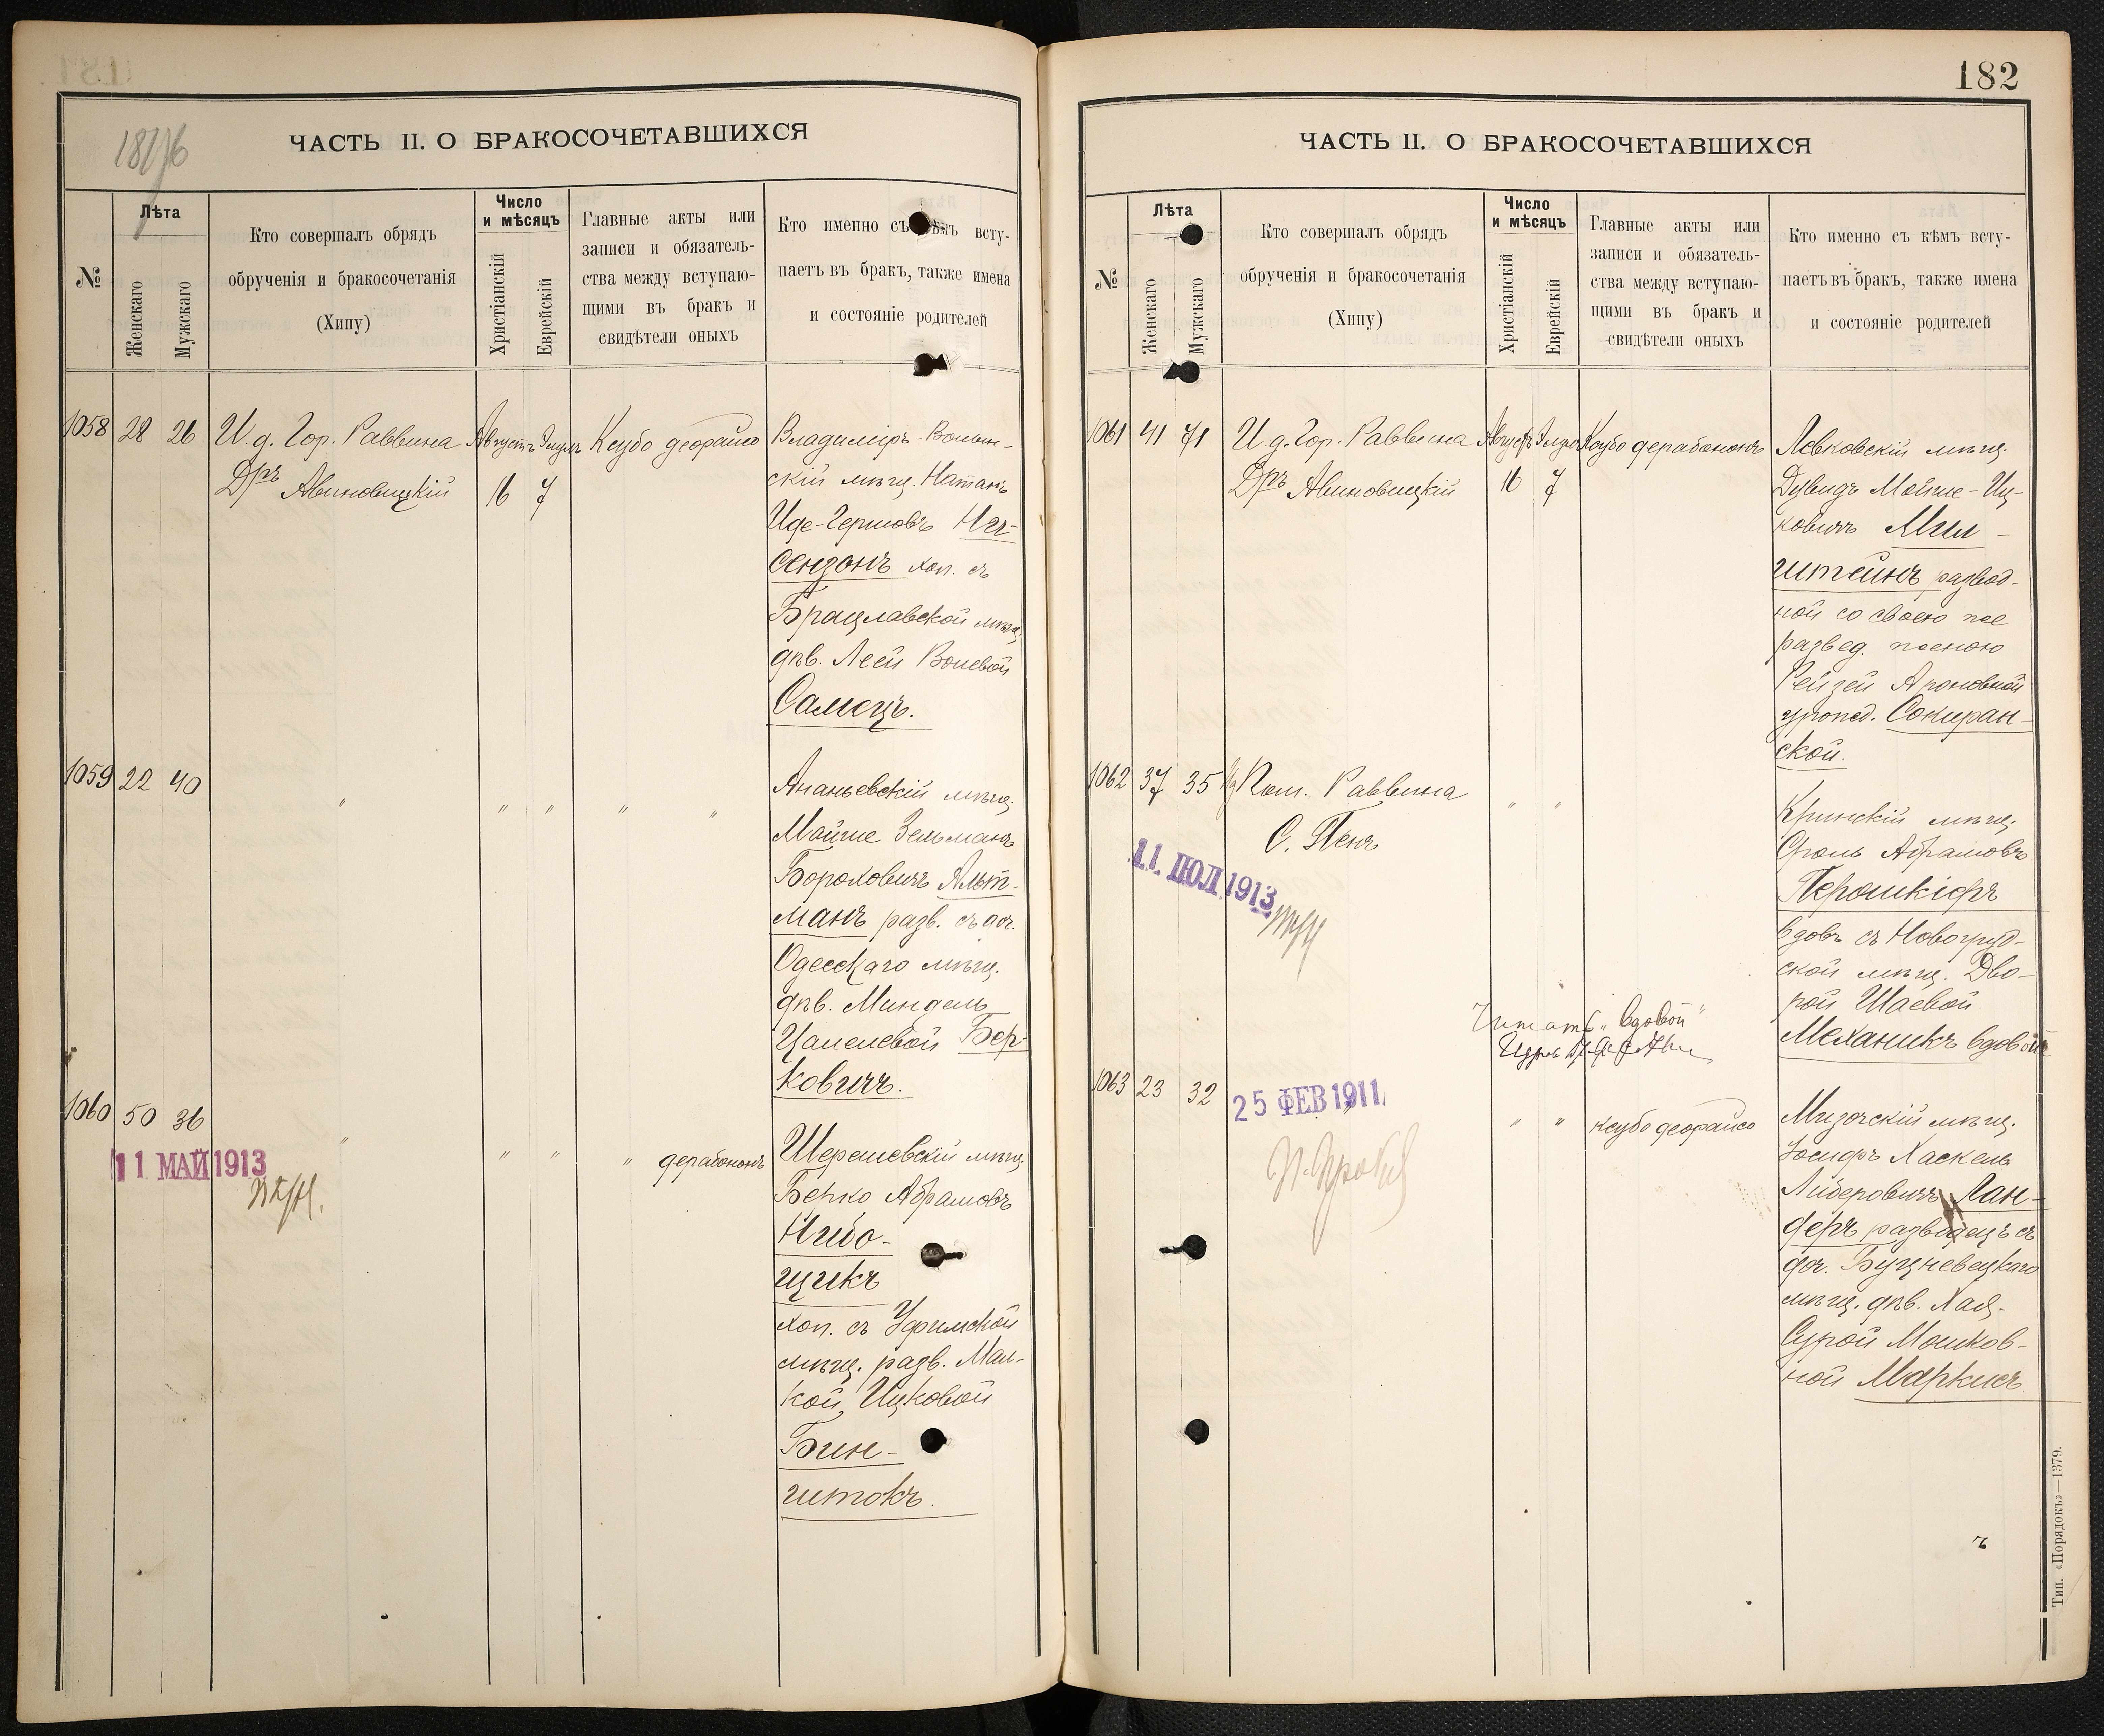 ЧАСТЬ II. О БРАКОСОЧЕТАВШИХСЯ
№
Лѣта
Женскаго
Мужскаго
Кто совершалъ обрядъ
обрученія и бракосочетанія
(Хипу)
Число
и мѣсяцъ
Христіанскій
Еврейскій
Главные акты или
записи и обязатель-
ства между вступаю-
щими въ бракъ и
свидѣтели оныхъ
Кто именно съ всту-
паетъ въ бракъ, также имена
и состояніе родителей
1058 28 26 И. д. Гор. Раввина Августъ Элулъ Ксубо деорайсо
Дръ Авиновицкій 16 7
Владиміръ-Волын-
скій мѣщ. Натанъ
Иде-Гершовъ
сензонъ хол. съ
Брацлавской мѣщ.
дѣв. Леей Волевой
Самецъ.
1059 22 40 " " " " "
Ананьевскій мѣщ.
Мойше Зельманъ
Бороховичъ Альт-
манъ разв. съ доч.
Одесскаго мѣщ.
дѣв. Миндель
Цалелевой Бер-
ковичъ.
1060 50 36 " " " " дерабононъ
11 МАЙ 1913
Шерешевскій мѣщ.
Берко Абрамовъ
Нибо-
щикъ
хол. съ Уфимской
мѣщ. разв. Мал-
кой Ицковой
Бин-
штокъ.
182
ЧАСТЬ II. О БРАКОСОЧЕТАВШИХСЯ
№
Лѣта
Женскаго
Мужскаго
Кто совершалъ обрядъ
обрученія и бракосочетанія
(Хипу)
Число
и мѣсяцъ
Христіанскій
Еврейскій
Главные акты или
записи и обязатель-
ства между вступаю-
щими въ бракъ и
свидѣтели оныхъ
Кто именно съ кѣмъ всту-
паетъ въ бракъ, также имена
и состояніе родителей
1061 41 71 И. д. Гор. Раввина Августъ Элулъ Ксубо дерабононъ
Дръ Авиновицкій 16 7
Левковскій мѣщ.
Дувидъ Мойше-Иц-
ковичъ Мил-
штейнъ развод-
ной со своею же
развед. женою
Рейзей Ароновной
урожд. Сокиран-
ской.
1062 37 35 Пом. Раввина " "
С. Пенъ
11. ІЮЛ 1913
Кринскій мѣщ.
Сроль Абрамовъ
Перошкіфъ
вдовъ съ Новогруд-
ской мѣщ. Дво-
рой Шаевой
Механикъ вдовой
Читать "вдовой"
1063 23 32 " " " ксубо деорайсо
25 ФЕВ 1911.
Мизочскій мѣщ.
Іосифъ Хаскель
Лидеровичъ Лан-
деръ разведецъ съ
доч. Буцневецкаго
мѣщ. дѣв. Хая-
Сурой Мошков-
ной Маркисъ
Тип. «Порядокъ»—1379.